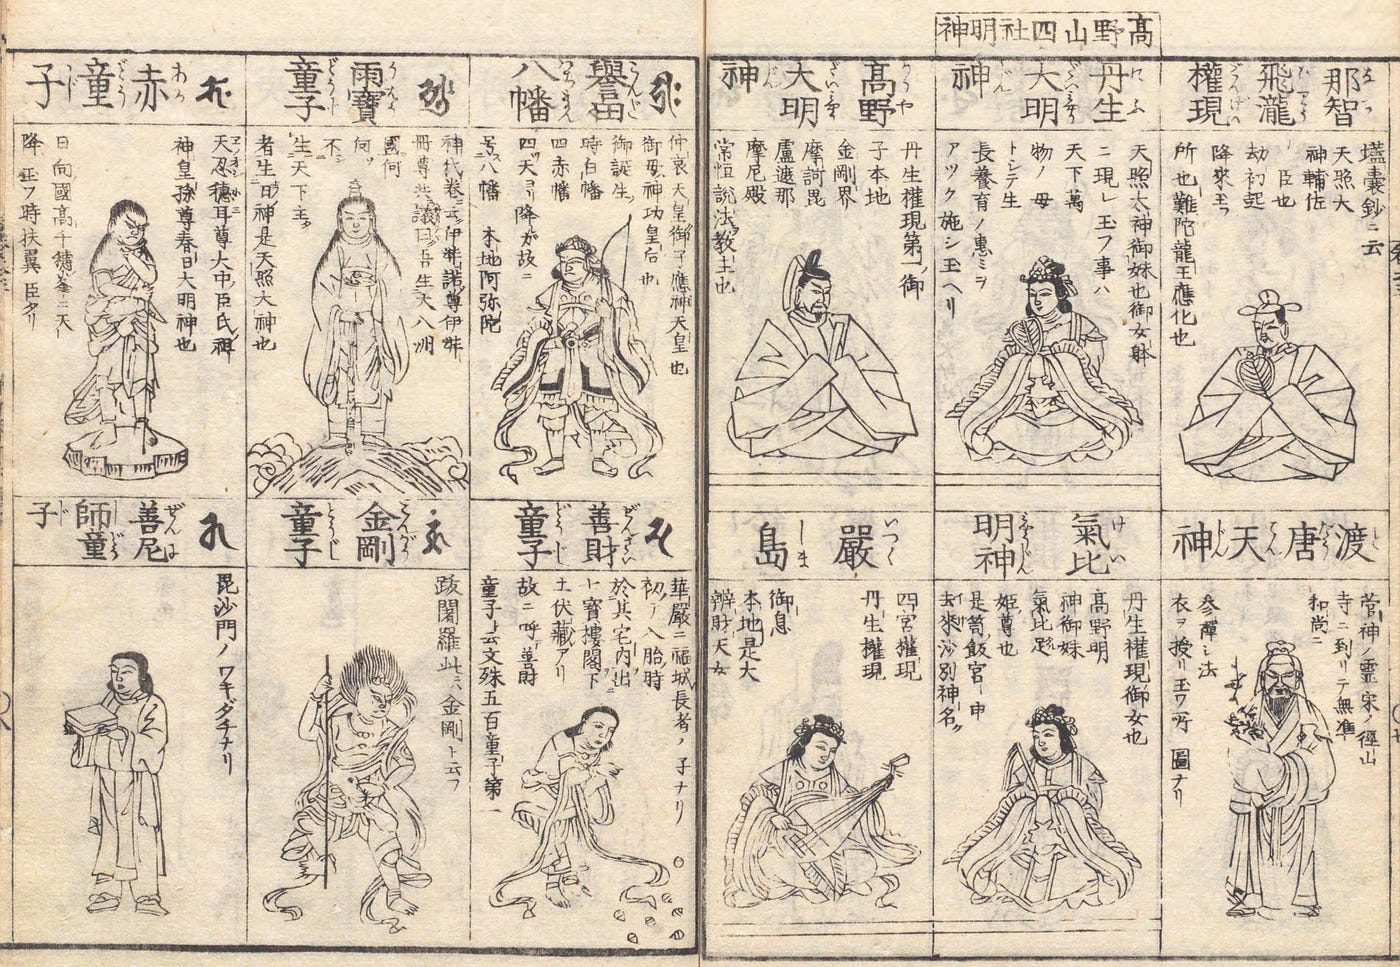 高野山四社明神
那智
飛瀧
權現
なち
ひりう
ごんげん
壒嚢鈔ニ云
天照大
神輔佐
ノ臣也
劫初起
降來玉フ
所也難陀龍王應化也
丹生
大明
神
にふ
天照太神御妹也御女躰
ニ現レ玉フ事ハ
天下萬
物ノ母
トシテ生
長養育ノ惠ミヲ
アツク施シ玉ヘリ
高野
大明
神
かうや
丹生權現第一御
子本地
金剛界
摩訶毘
盧遮那
摩尼殿
常恒説法教主也
渡唐天神
とたうてんじん
菅神ノ靈宋ノ徑山
寺ニ到リテ無準
和尚ニ
參禪シ法
衣ヲ授リ玉フ所ノ圖ナリ
氣比
明神
けい
丹生權現御女也
高野明
神御妹
氣比
姫尊也
是笥飯宮ト申
去來沙別神名ク
嚴島
いつくしま
四宮權現
丹生權現
御息
本地是大
辨財天女
譽田
八幡
仲哀天皇御子應神天皇也
御母神功皇后也
御誕生ノ
時白幡
四赤幡
四ツ天ヨリ降ガ故ニ
号ス八幡 本地阿弥陀
雨寶
童子
うほう
どうじ
神代卷ニ云伊弉諾尊伊弉
冊尊共議曰吾生大八洲
國何
何ソ
不ン
生天下主ヲ
者生日ノ神是天照大神也
赤童子
あかどうじ
天忍穂耳尊大中臣氏祖
神皇孫尊春日大明神也
日向國高千穗峯ニ天
降玉フ時扶翼ノ臣タリ
善財
童子
ぜんざい
どうじ
華嚴ニ福城長者ノ子ナリ
初メテ入胎時
於其宅内出
七寶樓閣下
土伏藏アリ
故ニ呼善財
童子ト云文殊五百童子第一
金剛
童子
こんがう
どうじ
跋闍羅此ニハ金剛ト云フ
善尼
師童
子
ぜんに
しどう
じ
毘沙門ノワキダチナリ